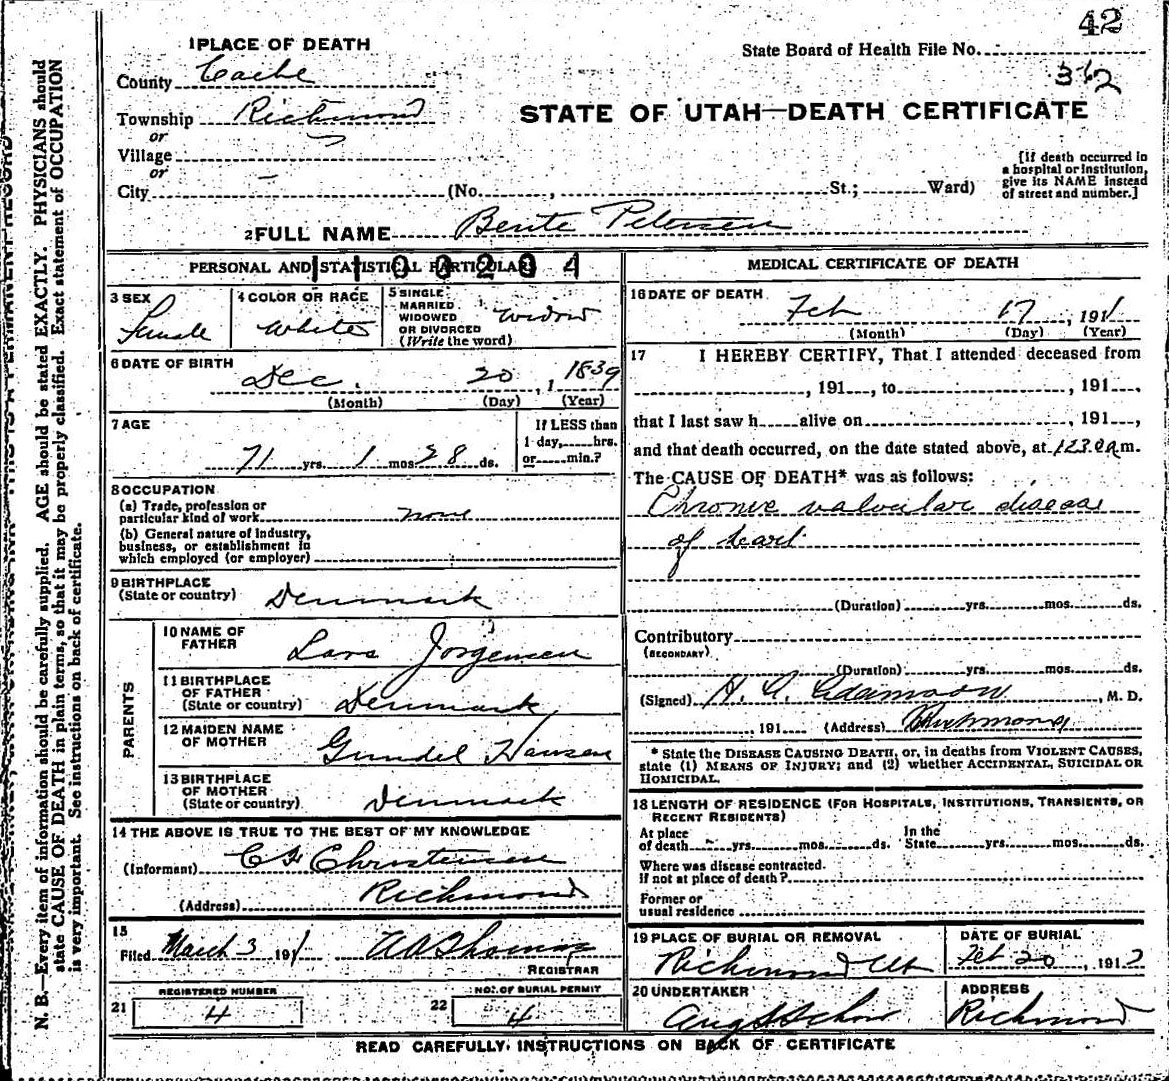 42
State Board of Health File No.
362
STATE OF UTAH—DEATH CERTIFICATE
1 PLACE OF DEATH
County Cache
Township Richmond
or
Village
or
City (No. , St.; Ward)
[If death occurred in
a hospital or institution,
give its NAME instead
of street and number.]
2 FULL NAME Bente Petersen
PERSONAL AND STATISTICAL PARTICULARS
1100294
3 SEX
Female
4 COLOR OR RACE
White
5 SINGLE
MARRIED
WIDOWED
OR DIVORCED
(Write the word)
Widow
6 DATE OF BIRTH
Dec. 20, 1839
(Month) (Day) (Year)
7 AGE
71 yrs. 1 mos. 28 ds.
If LESS than
1 day, hrs.
or min.?
8 OCCUPATION
(a) Trade, profession or
particular kind of work none
(b) General nature of industry,
business, or establishment in
which employed (or employer)
9 BIRTHPLACE
(State or country) Denmark
PARENTS
10 NAME OF
FATHER Lars Jorgensen
11 BIRTHPLACE
OF FATHER
(State or country) Denmark
12 MAIDEN NAME
OF MOTHER Gundel Hansen
13 BIRTHPLACE
OF MOTHER
(State or country) Denmark
14 THE ABOVE IS TRUE TO THE BEST OF MY KNOWLEDGE
(Informant) Christensen
(Address) Richmond
15
Filed March 3 1911 Thomas
REGISTRAR
21 REGISTERED NUMBER
4
22 NO. OF BURIAL PERMIT
4
MEDICAL CERTIFICATE OF DEATH
16 DATE OF DEATH
Feb 17, 1911
(Month) (Day) (Year)
17 I HEREBY CERTIFY, That I attended deceased from
, 191 , to , 191 ,
that I last saw h alive on , 191 ,
and that death occurred, on the date stated above, at 12 30 a m.
The CAUSE OF DEATH* was as follows:
Chronic valvular disease
of heart
(Duration) yrs. mos. ds.
Contributory
(SECONDARY)
(Duration) yrs. mos. ds.
(Signed) H. A. Adamson, M. D.
, 191 (Address) Richmond
* State the DISEASE CAUSING DEATH, or, in deaths from VIOLENT CAUSES,
state (1) MEANS OF INJURY; and (2) whether ACCIDENTAL, SUICIDAL OR
HOMICIDAL.
18 LENGTH OF RESIDENCE (FOR HOSPITALS, INSTITUTIONS, TRANSIENTS, OR
RECENT RESIDENTS)
At place
of death yrs. mos. ds.
In the
State yrs. mos. ds.
Where was disease contracted.
if not at place of death?
Former or
usual residence
19 PLACE OF BURIAL OR REMOVAL
Richmond Ut
DATE OF BURIAL
Feb 20, 191
20 UNDERTAKER
Aug
ADDRESS
Richmond
READ CAREFULLY INSTRUCTIONS ON BACK OF CERTIFICATE
N. B.—Every item of information should be carefully supplied. AGE should be stated EXACTLY. PHYSICIANS should
state CAUSE OF DEATH in plain terms, so that it may be properly classified. Exact statement of OCCUPATION
is very important. See instructions on back of certificate.